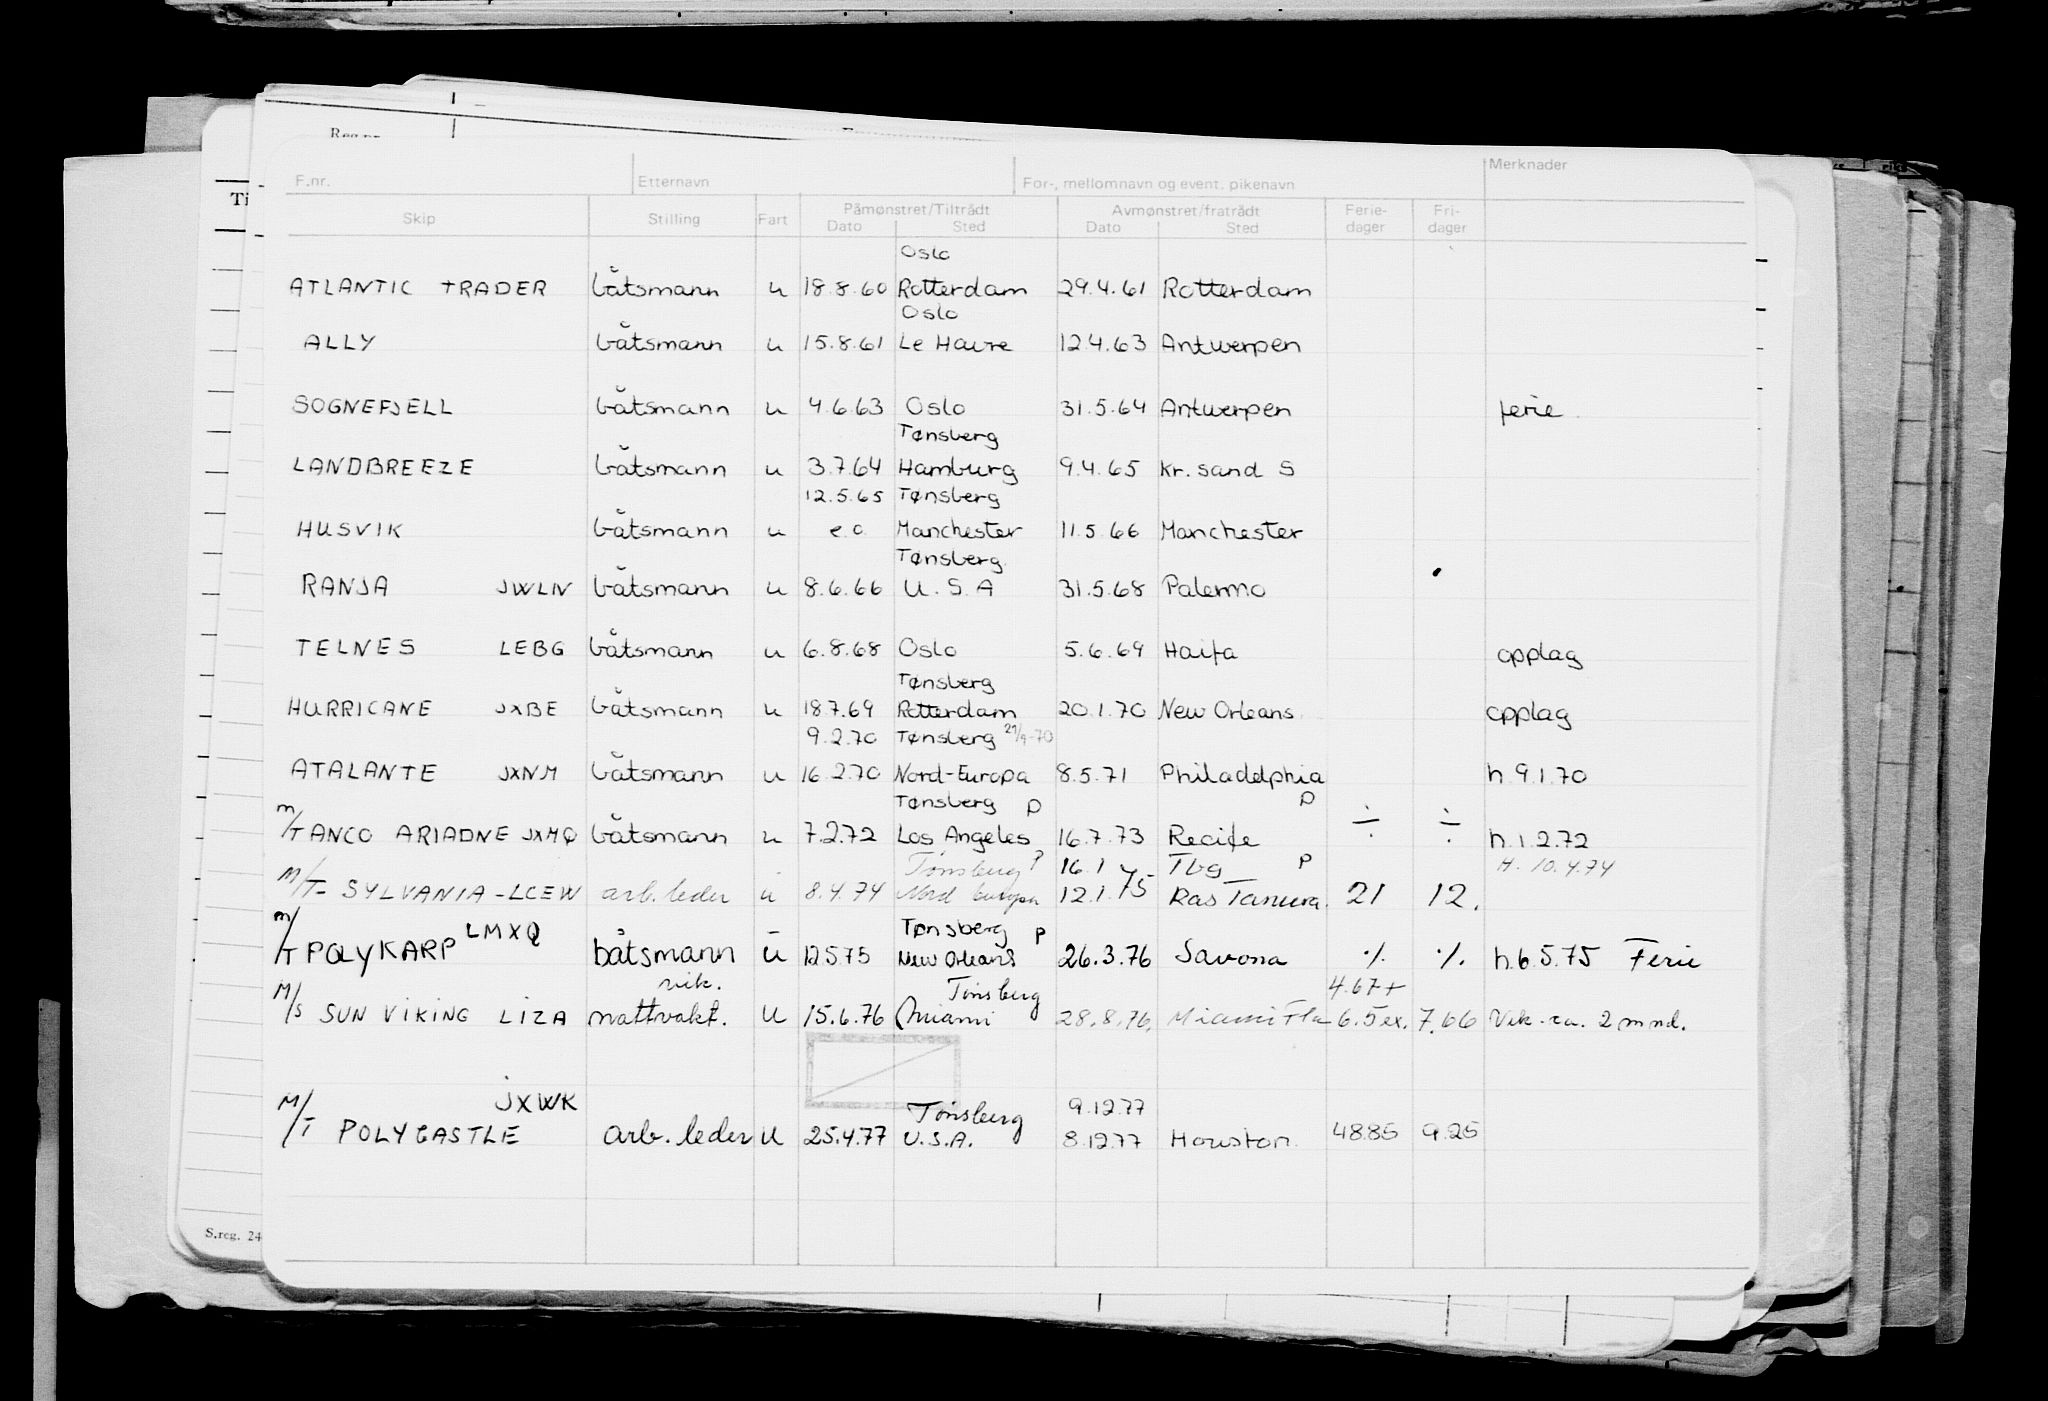 F.nr. Etternavn For-, mellomnavn og event. pikenavn Merknader
Skip Stilling Fart Påmønstret/Tiltrådt Dato Sted Avmønstret/fratrådt Dato Sted Ferie-dager Fri-dager
Oslo
ATLANTIC TRADER båtsmann u 18.8.60 Rotterdam 29.4.61 Rotterdam
Oslo
ALLY båtsmann u 15.8.61 Le Havre 12.4.63 Antwerpen
SOGNEFJELL båtsmann u 4.6.63 Oslo 31.5.64 Antwerpen ferie
Tønsberg
LANDBREEZE båtsmann u 3.7.64 Hamburg 9.4.65 Kr.sand S
12.5.65 Tønsberg
HUSVIK båtsmann u e.o. Manchester 11.5.66 Manchester
Tønsberg
RANJA JWLN båtsmann u 8.6.66 U.S.A 31.5.68 Palermo
TELNES LEBG båtsmann u 6.8.68 Oslo 5.6.69 Haifa opplag
Tønsberg
HURRICANE JXBE båtsmann u 18.7.69 Rotterdam 20.1.70 New Orleans opplag
9.2.70 Tønsberg
ATALANTE JXNM båtsmann u 16.2.70 Nord-Europa 8.5.71 Philadelphia h.9.1.70
Tønsberg P P
M/T ANCO ARIADNE JXMQ båtsmann u 7.2.72 Los Angeles 16.7.73 Recife ÷ ÷ h.1.2.72
Tønsberg P 16.1 Tbg P H. 10.4.74
M/T SYLVANIA - LCEW arb.leder u 8.4.74 Nord Europa 12.1.75 Ras Tanura 21 12.
Tønsberg P
M/T POLYKARP LMXQ båtsmann u 12.5.75 New Orleans 26.3.76 Savona ·/. ·/. h.6.5.75 Ferie
vik. Tønsberg 4.67+
M/S SUN VIKING LIZA nattvakt. U 15.6.76 Miami 28.8.76. Miami Fla 6.5 ex. 7.66 Vik. ca. 2 mnd.
JXWK Tønsberg 9.12.77
M/T POLYCASTLE arb. leder U 25.4.77 U.S.A. 8.12.77 Houston 48.85 9.25
S.reg. 24